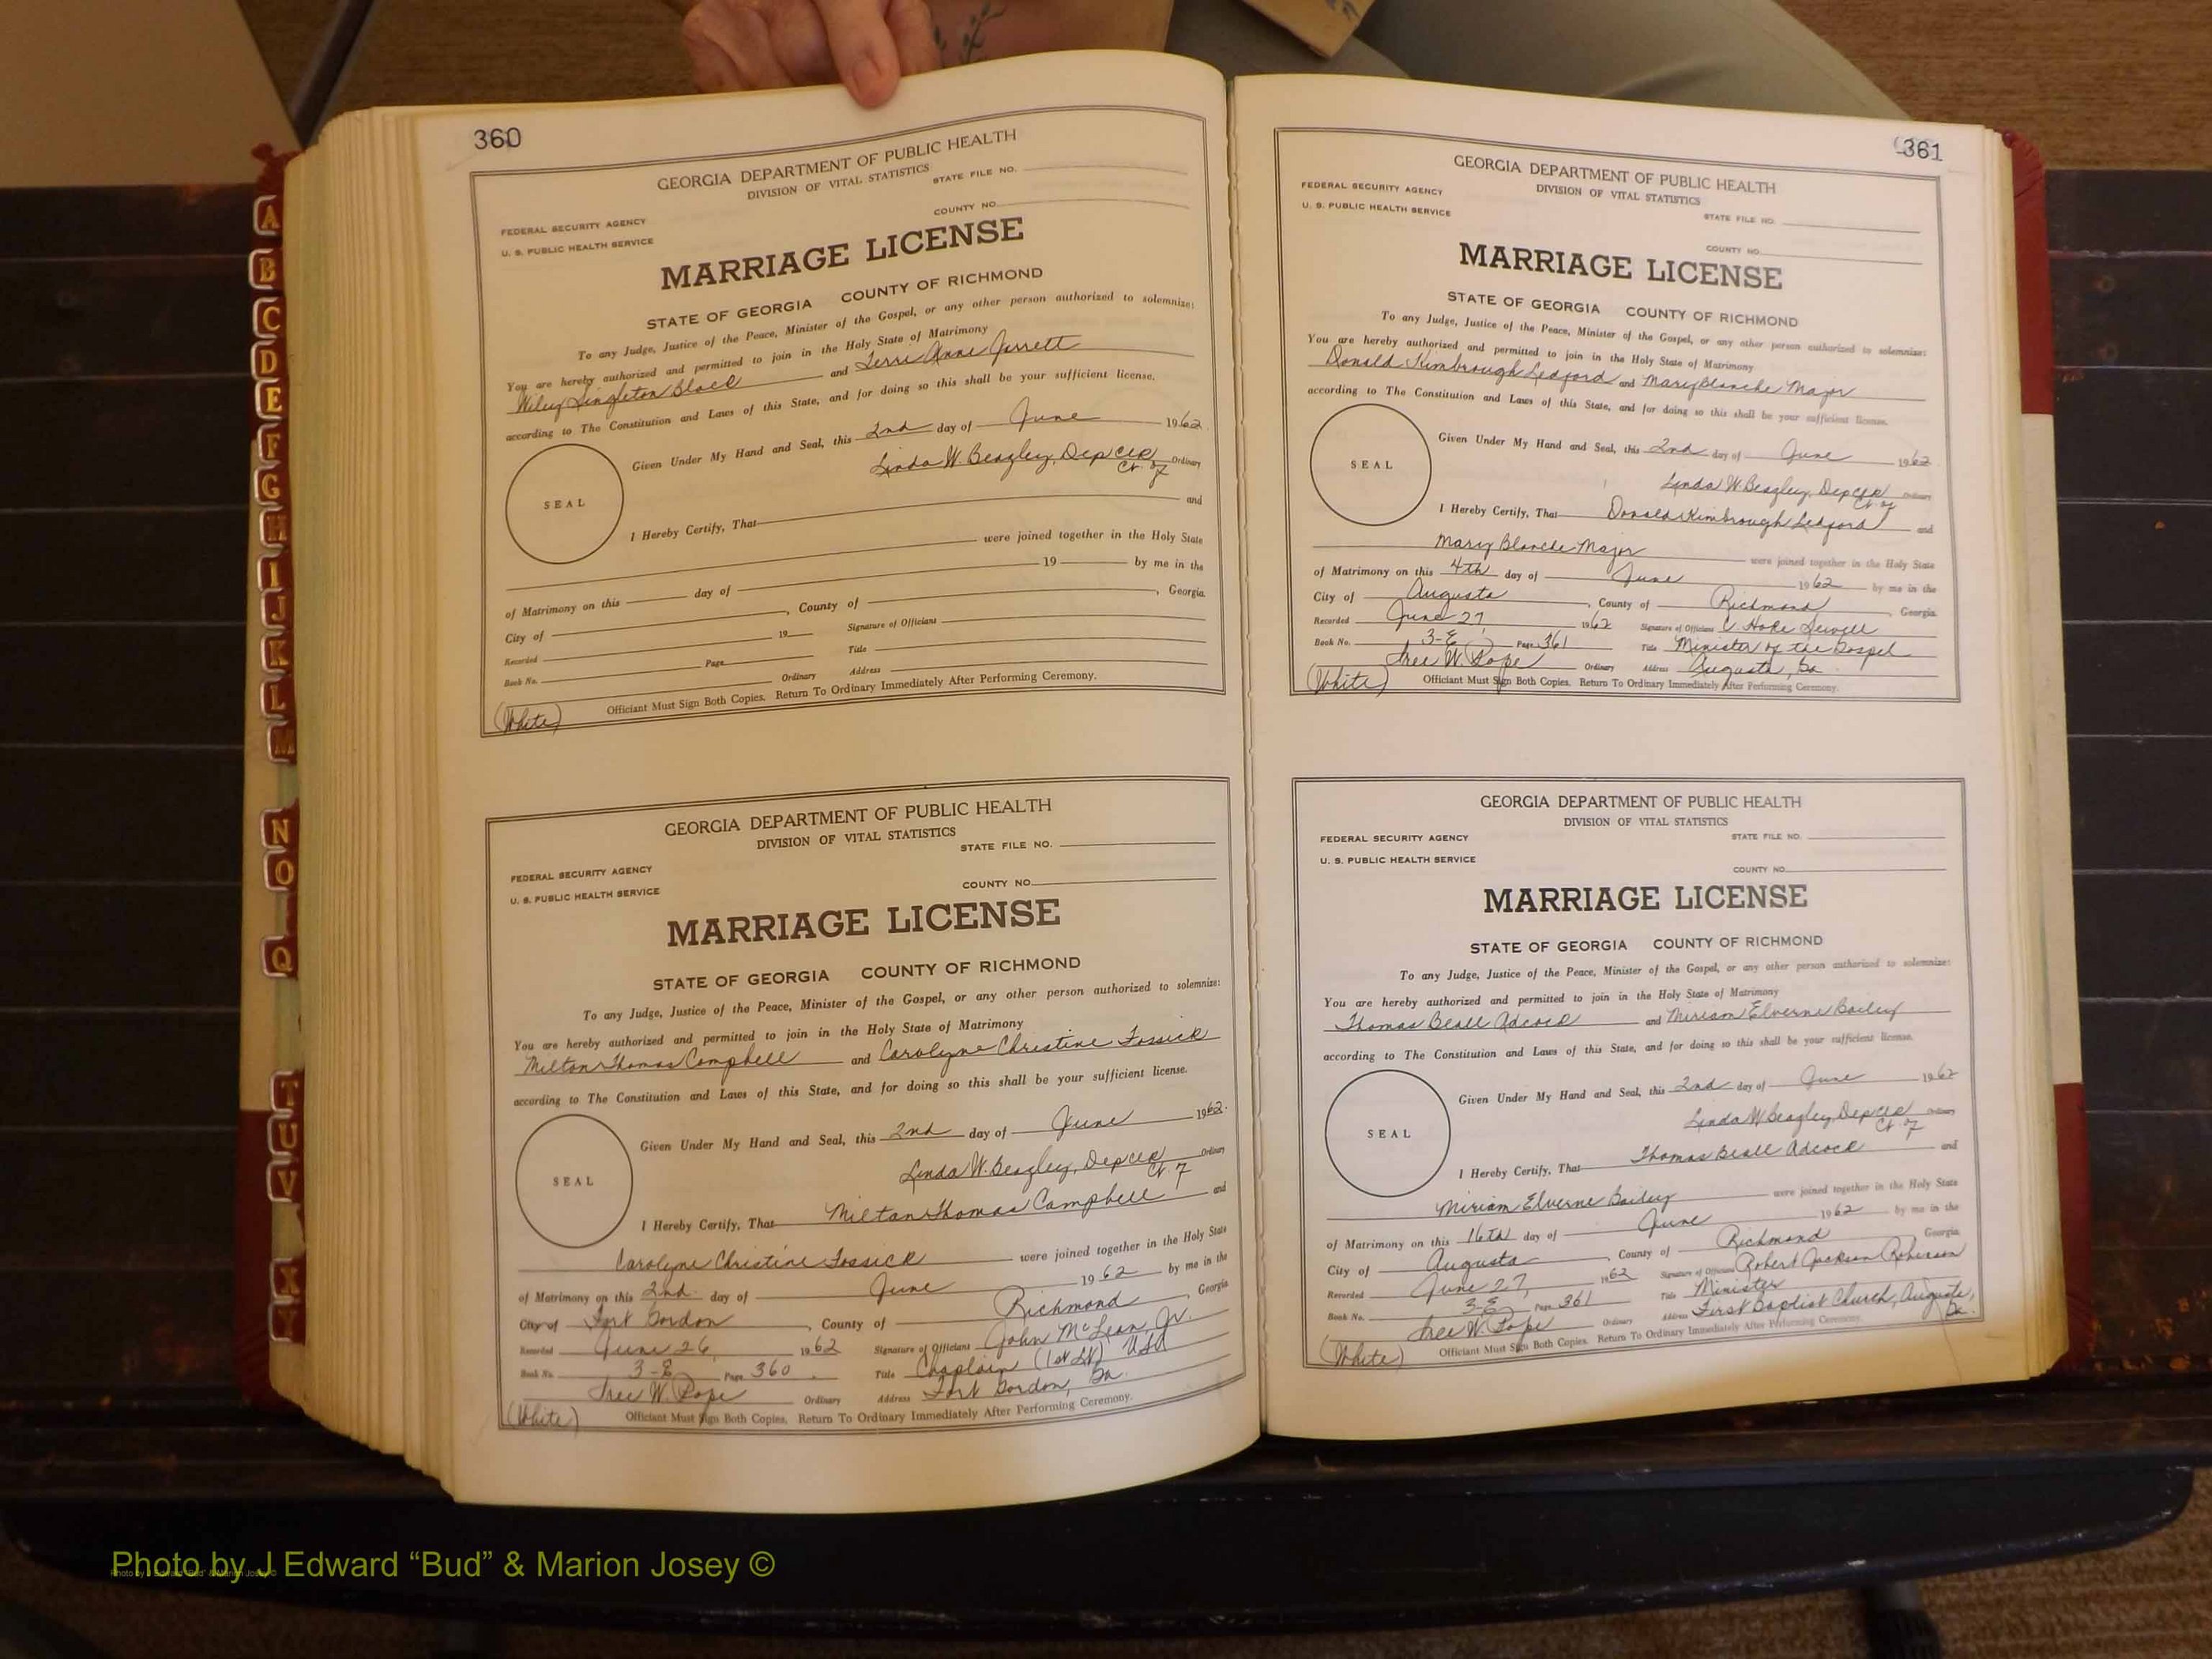 360
GEORGIA DEPARTMENT OF PUBLIC HEALTH
DIVISION OF VITAL STATISTICS
STATE FILE NO.
FEDERAL SECURITY AGENCY
COUNTY NO.
U. S. PUBLIC HEALTH SERVICE
MARRIAGE LICENSE
STATE OF GEORGIA COUNTY OF RICHMOND
To any Judge, Justice of the Peace, Minister of the Gospel, or any other person authorized to solemnize:
You are hereby authorized and permitted to join in the Holy State of Matrimony
Wiley Singleton Black and Terri Anne Jarrett
according to The Constitution and Laws of this State, and for doing so this shall be your sufficient license.
Given Under My Hand and Seal, this 2nd day of June 1962
Linda W. Beazley, Dep Clk Ordinary
SEAL
and
I Hereby Certify, That
were joined together in the Holy State
of Matrimony on this day of 19 by me in the
City of , County of , Georgia.
Recorded 19 Signature of Officians
Book No. Page Title
Ordinary Address
(White) Officiant Must Sign Both Copies. Return To Ordinary Immediately After Performing Ceremony.
GEORGIA DEPARTMENT OF PUBLIC HEALTH
DIVISION OF VITAL STATISTICS
STATE FILE NO.
FEDERAL SECURITY AGENCY
COUNTY NO.
U. S. PUBLIC HEALTH SERVICE
MARRIAGE LICENSE
STATE OF GEORGIA COUNTY OF RICHMOND
To any Judge, Justice of the Peace, Minister of the Gospel, or any other person authorized to solemnize:
You are hereby authorized and permitted to join in the Holy State of Matrimony
Milton Thomas Campbell and Carolyne Christine Fossick
according to The Constitution and Laws of this State, and for doing so this shall be your sufficient license.
Given Under My Hand and Seal, this 2nd day of June 1962.
Linda W. Beazley, Dep Clk Ordinary
SEAL
I Hereby Certify, That Milton Thomas Campbell and
Carolyne Christine Fossick were joined together in the Holy State
of Matrimony on this 2nd. day of June 1962 by me in the
City of Fort Gordon, County of Richmond, Georgia
Recorded June 26, 1962 Signature of Officians John McLean, Jr.
Book No. 3-E Page 360. Title Chaplain (1st Lt) USA
Free W. Pope Ordinary Address Fort Gordon, Ga.
(White) Officiant Must Sign Both Copies. Return To Ordinary Immediately After Performing Ceremony.
361
GEORGIA DEPARTMENT OF PUBLIC HEALTH
FEDERAL SECURITY AGENCY
DIVISION OF VITAL STATISTICS
U. S. PUBLIC HEALTH SERVICE
STATE FILE NO.
COUNTY NO.
MARRIAGE LICENSE
STATE OF GEORGIA COUNTY OF RICHMOND
To any Judge, Justice of the Peace, Minister of the Gospel, or any other person authorized to solemnize:
You are hereby authorized and permitted to join in the Holy State of Matrimony
Donald Kimbrough Ledford and Mary Blanche Major
according to The Constitution and Laws of this State, and for doing so this shall be your sufficient license.
Given Under My Hand and Seal, this 2nd day of June 1962
Linda W. Beazley, Dep Clk Ordinary
SEAL
I Hereby Certify, That Donald Kimbrough Ledford and
Mary Blanche Major were joined together in the Holy State
of Matrimony on this 4th day of June 1962 by me in the
City of Augusta, County of Richmond, Georgia.
Recorded June 27 1962 Signature of Officians Hoke Sewell
Book No. 3-E Page 361 Title Minister of the Gospel
Free W. Pope Ordinary Address Augusta, Ga
(White) Officiant Must Sign Both Copies. Return To Ordinary Immediately After Performing Ceremony.
GEORGIA DEPARTMENT OF PUBLIC HEALTH
DIVISION OF VITAL STATISTICS
FEDERAL SECURITY AGENCY
STATE FILE NO.
U. S. PUBLIC HEALTH SERVICE
COUNTY NO.
MARRIAGE LICENSE
STATE OF GEORGIA COUNTY OF RICHMOND
To any Judge, Justice of the Peace, Minister of the Gospel, or any other person authorized to solemnize:
You are hereby authorized and permitted to join in the Holy State of Matrimony
Thomas Beall Adcock and Miriam Elverne Bailey
according to The Constitution and Laws of this State, and for doing so this shall be your sufficient license.
Given Under My Hand and Seal, this 2nd day of June 1962
Linda W. Beazley, Dep Clk Ordinary
SEAL
I Hereby Certify, That Thomas Beall Adcock and
Miriam Elverne Bailey were joined together in the Holy State
of Matrimony on this 16th day of June 1962 by me in the
City of Augusta, County of Richmond Georgia
Recorded June 27, 1962 Signature of Officians Robert Jackson Robinson
Book No. 3-E Page 361 Title Minister
Free W. Pope Ordinary Address First Baptist Church, Augusta, Ga.
(White) Officiant Must Sign Both Copies. Return To Ordinary Immediately After Performing Ceremony.
A
B
C
D
E
F
G
H
I
J
K
L
M
N
O
Q
T
U
V
X
Y
Photo by J Edward “Bud” & Marion Josey ©
Photo by J Edward “Bud” & Marion Josey ©